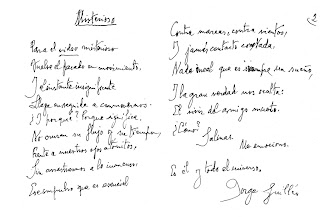 Misterioso
2
Para el video misterioso
Vuelve el pasado en movimiento,
Y el instante insignificante
Llega enseguida a conmovernos:
¿Y por qué? Porque significa.
No ocurren su flujo y su tiempo,
Frente a nuestros ojos atónitos,
Sin arrastrarnos a lo inmenso:
Ese impulso que es esencial
Contra mareas, contra vientos,
Y jamás contacto cortada,
Nada irreal que es siempre un sueño,
Y la gran verdad nos oculta:
El vivir del amigo muerto.
¿Cómo? Salinas
No emociona.
Es él y todo el universo.
Jorge Guillén